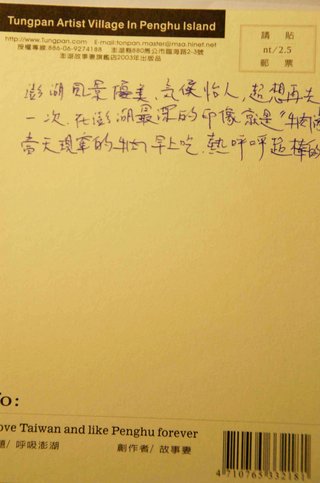 Tungpan Artist Village In Penghu Island
http://www.Tungpan.com E-mail:tonpan.master@msa.hinet.net
授權專線:886-06-9274188 澎湖縣880馬公市臨海路2-3號
澎湖故事妻旗艦店2003年出版品
請 貼
nt/2.5
郵 票
澎湖風景優美,氣候怡人,超想再去
一次.在澎湖最深的印像就是"牛肉
當天現宰的牛肉早上吃.熱呼呼超棒的
o:
ove Taiwan and like Penghu forever
題/ 呼吸澎湖 創作者/ 故事妻
4 710765 332181